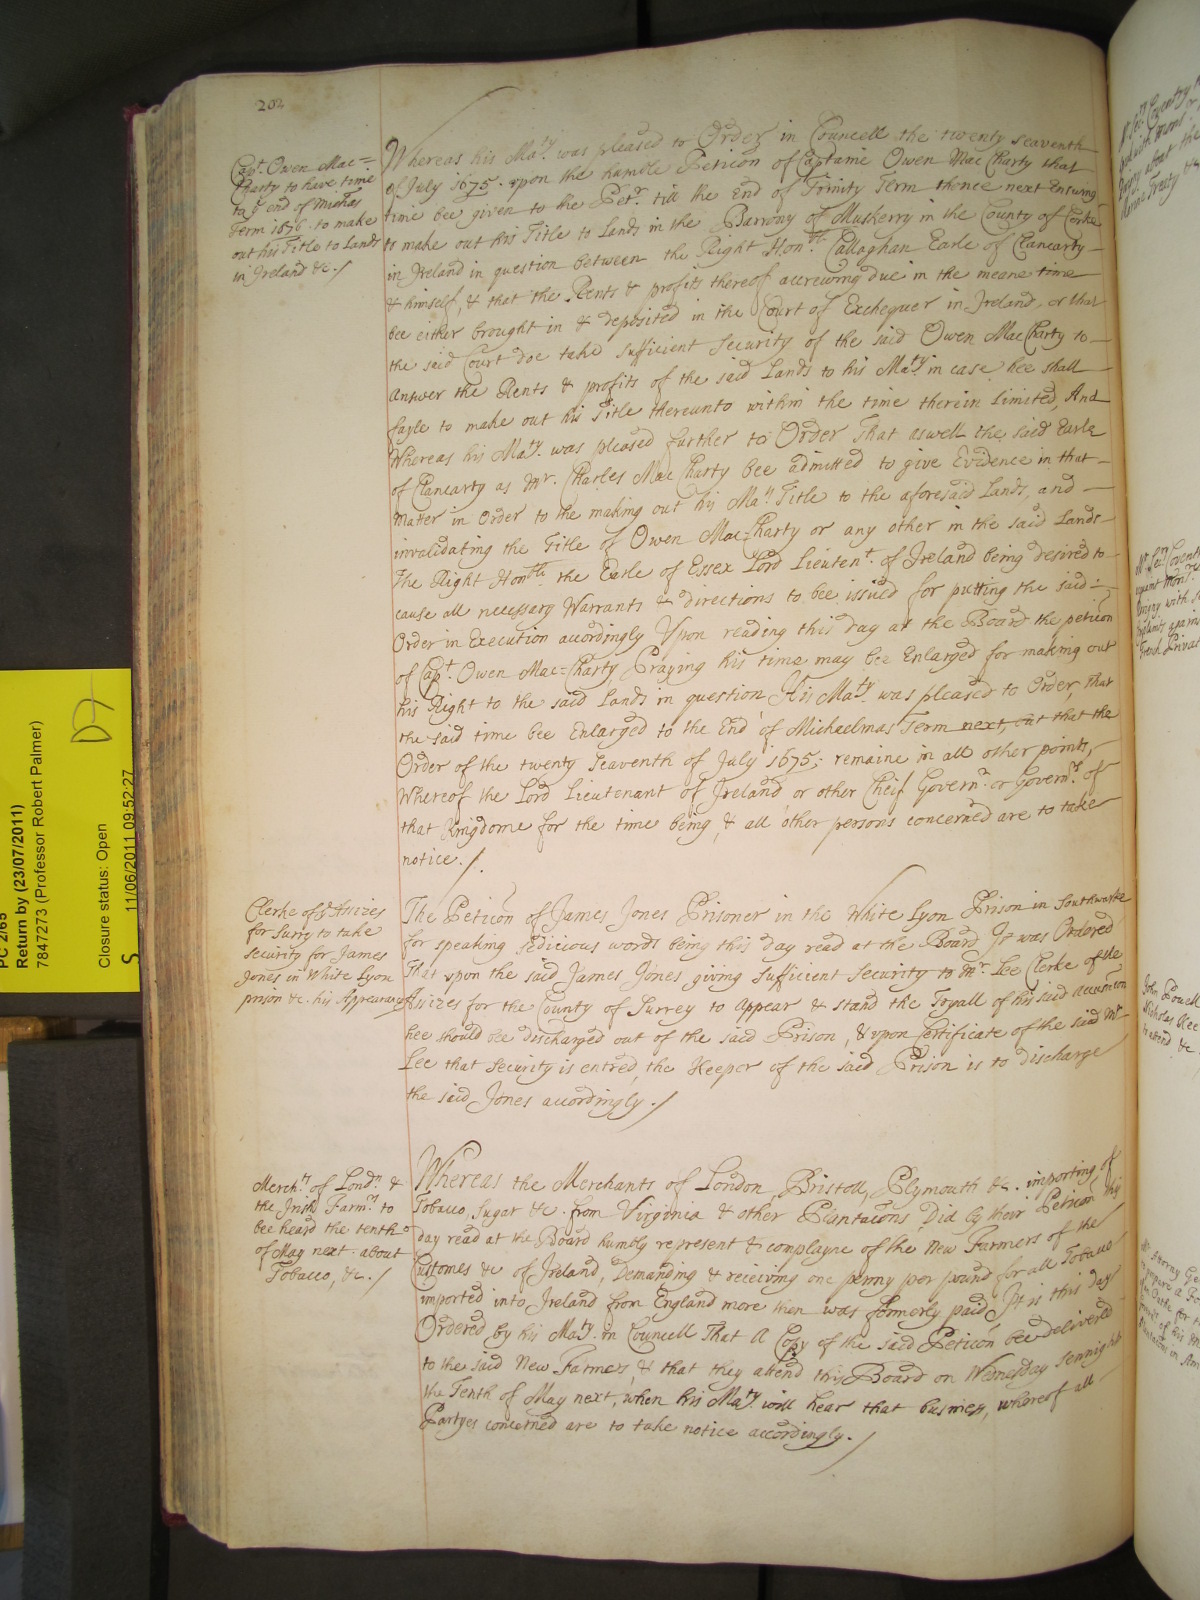 202
Capt. Owen Mac=
Charty to have time
to ye end of Michas
Term 1676. to make
out his Title to Lands
in Ireland &c./
Whereas his Maty. was pleased to Order in Councell the twenty seaventh
of July 1675. upon the humble Peticon of Captaine Owen Mac Charty that
time bee given to the Petr. till the End of Trinity Term thence next Ensuing
to make out his Title to Lands in the Barrony of Muskerry in the County of Corke
in Ireland in question between the Right Honble. Callaghan Earle of Clancarty
& himself, & that the Rents & profits thereof accrewing due in the meane time
bee either brought in & deposited in the Court of Exchequer in Ireland, or that
the said Court doe take sufficient Security of the said Owen MacCharty to
Answer the Rents & profits of the said Lands to his Maty. in case hee shall
fayle to make out his Title thereunto within the time therein Limited, And
Whereas his Maty. was pleased further to Order That aswell the said Earle
of Clancarty as Mr. Charles Mac Charty bee admitted to give Evidence in that
Matter in Order to the making out his Mats. Title to the aforesaid Lands, and
invalidating the Title of Owen Mac=Charty or any other in the said Lands
The Right Honble the Earle of Essex Lord Lieutent. of Ireland being desired to
cause all necessary Warrants & directions to bee issued for putting the said
Order in Execution accordingly Upon reading this day at the Board the peticon
of Capt. Owen Mac=Charty Praying his time may bee Enlarged for making out
his Right to the said Lands in question His Maty. was pleased to Order, that
the said time bee Enlarged to the End of Michaelmas Term next, but that the
Order of the twenty Seaventh of July 1675, remaine in all other points,
Whereof the Lord Lieutenant of Ireland or other Cheif Governr. or Governrs. of
that Kingdome for the time being, & all other persons concerned are to take
notice./.
Clerke of ye Assizes
for Surry to take
security for James
Jones in White Lyon
prison &c. his Appearance
The Peticon of James Jones Prisoner in the White Lyon Prison in Southwarke
for speaking Sedicious words being this day read at the Board It was Ordered
That upon the said James Jones giving Sufficient Security to Mr. Lee Clerke of the
Assizes for the County of Surrey to Appear & stand the Tryall of his said accusacon
hee should bee discharged out of the said Prison, & upon Certificate of the said Mr.
Lee that Security is entred, the Keeper of the said Prison is to discharge
the said Jones accordingly./
Mercht. of Londn. &
the Irish Farmrs. to
bee heard the tenth
of May next about
Tobacco, &c./
Whereas the Merchants of London, Bristoll, Plymouth &c. importing of
Tobacco, Sugar &c. from Virginia & other Plantacons Did by their Peticon this
day read at the Board humbly represent & complayne of the New Farmers of the
Customes &c of Ireland, Demanding & receiving one penny per pound for all Tobacco
imported into Ireland from England more then was formerly paid, It is this day
Ordered by his Maty. in Councell That A Copy of the said Peticon bee delivered
to the said New Farmers, & that they attend this Board on Wednesday Sennight
the Tenth of May next, when his Maty. will hear that business, whereof all
Partyes concerned are to take notice accordingly./
PC 2/65
Return by (23/07/2011)
7847273 (Professor Robert Palmer)
Closure status: Open
S 11/06/2011 09:52:27